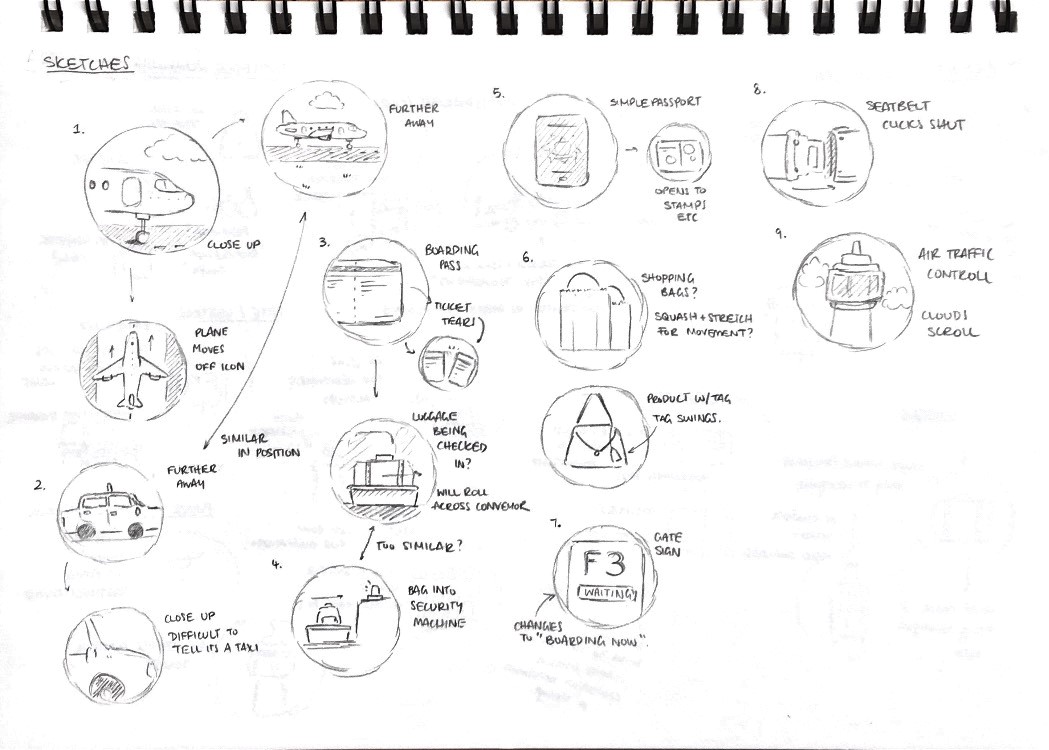 SKETCHES
1.
CLOSE UP
FURTHER
AWAY
PLANE
MOVES
OFF ICON
SIMILAR
IN POSITION
2.
FURTHER
AWAY
CLOSE UP
DIFFICULT TO
TELL ITS A TAXI
3.
BOARDING
PASS
TICKET
TEARS
LUGGAGE
BEING
CHECKED
IN?
WILL ROLL
ACROSS CONVEYOR
TOO SIMILAR?
4.
BAG INTO
SECURITY
MACHINE
5.
SIMPLE PASSPORT
OPENS TO
STAMPS
ETC
6.
SHOPPING
BAGS?
SQUASH + STRETCH
FOR MOVEMENT?
PRODUCT W/TAG
TAG SWINGS.
7.
GATE
SIGN
F3
WAITING
CHANGES
TO "BOARDING NOW".
8.
SEATBELT
CLICKS SHUT
9.
AIR TRAFFIC
CONTROLL
CLOUDS
SCROLL